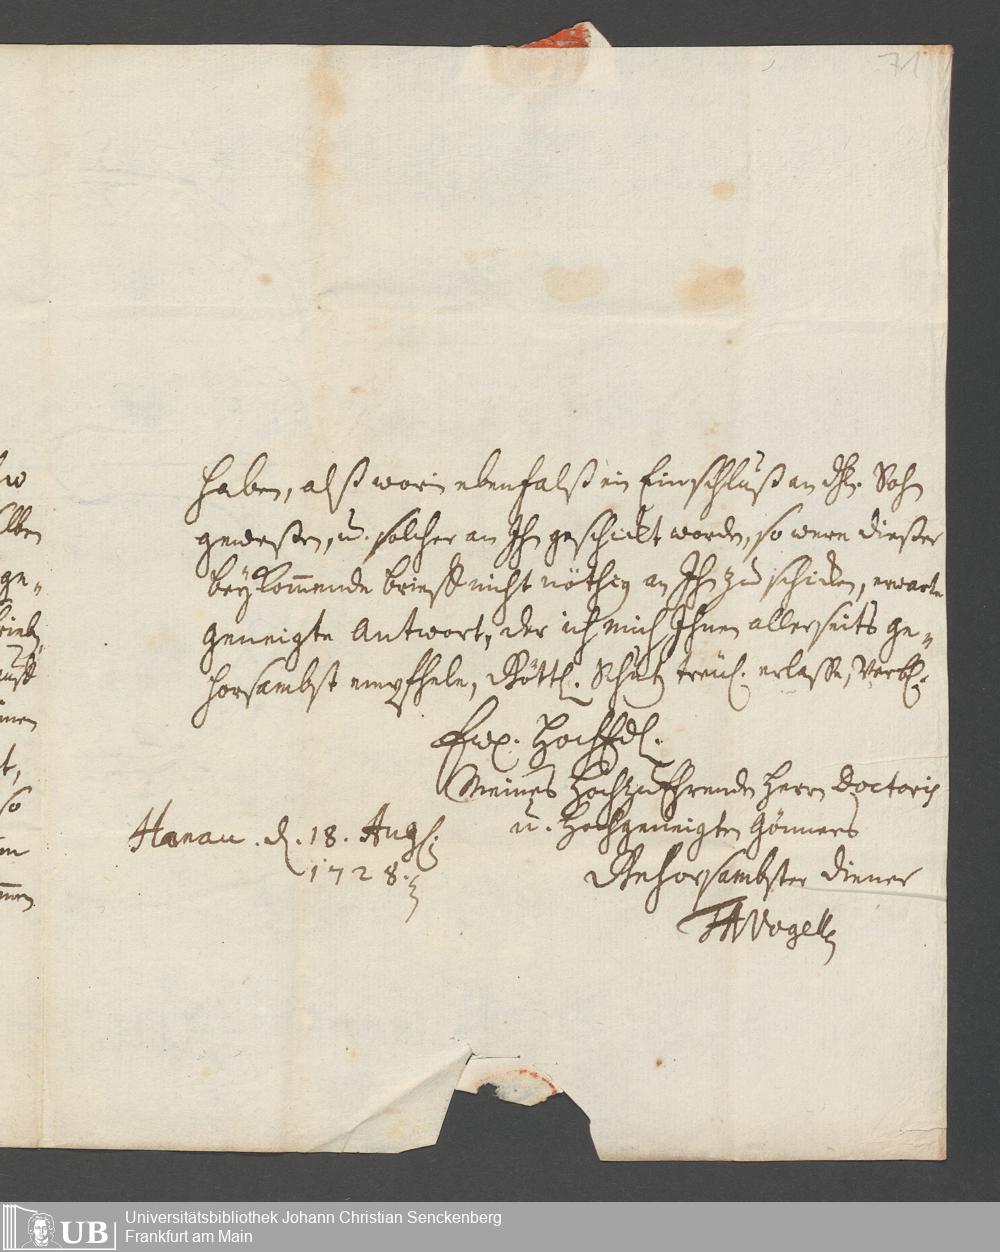 71
haben, alß worin ebenfalß ein Einschluß an dH. Sohn
geweßen, u. solcher an Ihn geschickt worden, so were dießer
beykommende brieff nicht nöthig an Ihn zu schicken, erwarte
geneigte Antwort, der ich mich Ihnen allerseits ge-
horsambst empfhele, Göttl. Schutz treul. erlasse, Verbl.
Ewr. HochEdl.
Meines Hochzuehrenden Herrn Doctoris
u. Hochgeneigten Gönners
Hanau. d. 18. Aug.
1728.
Gehorsambster Diener
Vogell
UB
Universitätsbibliothek Johann Christian Senckenberg
Frankfurt am Main